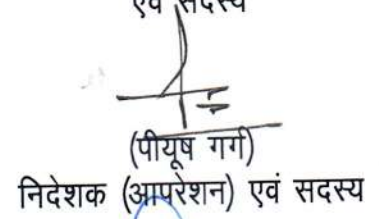 एवं सदस्य
(पीयूष गर्ग)
निदेशक (आपरेशन) एवं सदस्य